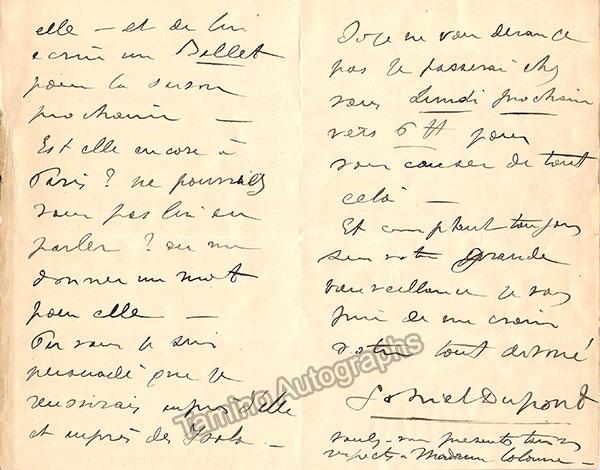 elle — et de lui
écrire un Ballet
pour la saison
prochaine —
Est elle encore à
Paris ? ne pourriez
vous pas lui en
parler ? ou me
donner un mot
pour elle —
Par vous je suis
persuadé que je
réussirais auprès d'elle
et auprès des Isola. —
Si je ne vous dérange
pas je passerai chez
vous Lundi prochain
vers 6 H pour
vous causer de tout
celà —
Et comptant toujours
sur votre grande
bienveillance je vous
prie de me croire
votre tout dévoué
Gabriel Dupont
présenter
respects à Madame Colonne —
Tamino Autographs